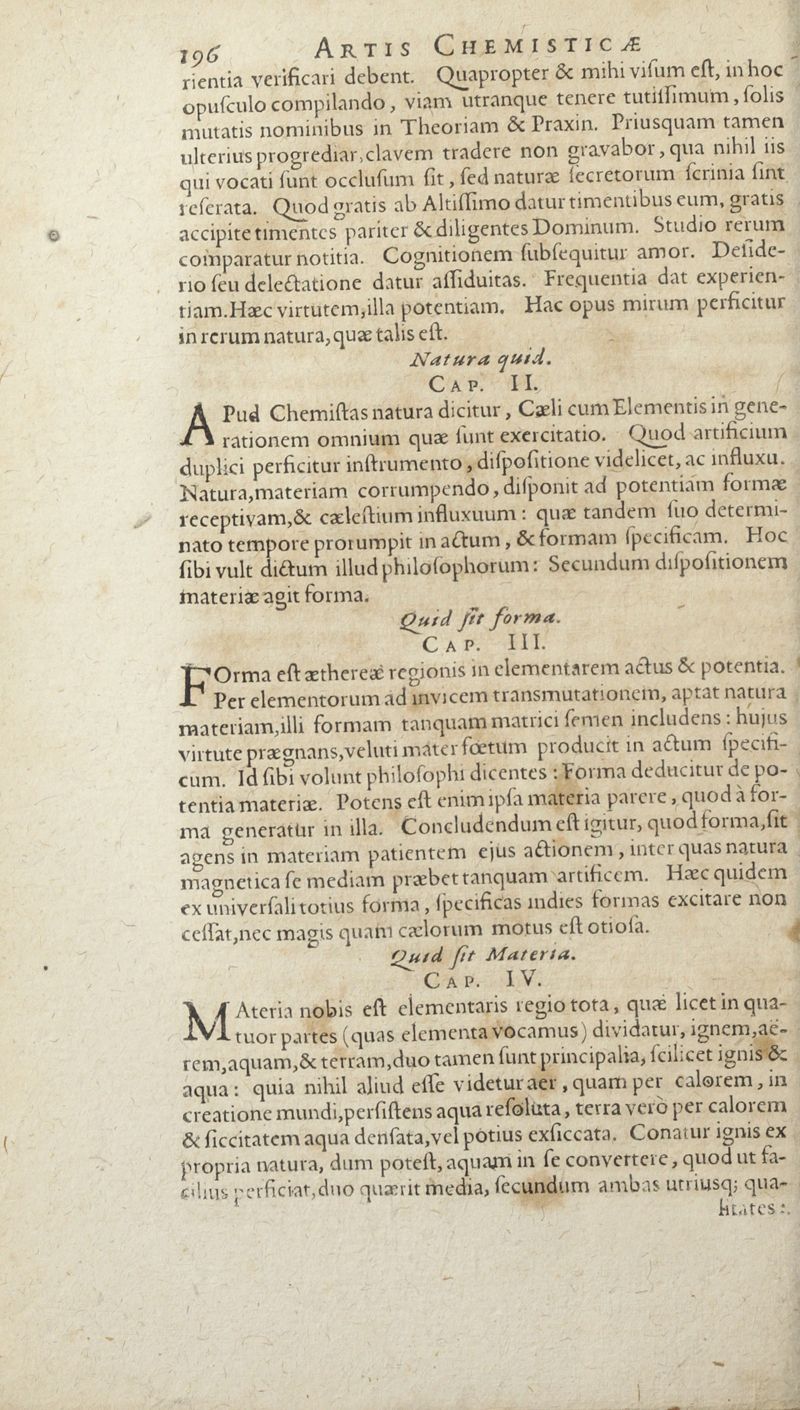 196 ARTIS CHEMISTICÆ
rientia verificari debent. Quapropter & mihi visum est, in hoc
opusculo compilando, viam utranque tenere tutissimum, solis
mutatis nominibus in Theoriam & Praxin. Priusquam tamen
ulterius progrediar, clavem tradere non gravabor, qua nihil iis
qui vocati sunt occlusum sit, sed naturæ secretorum scrinia sint
reserata. Quod gratis ab Altissimo datur timentibus eum, gratis
accipite timentes pariter & diligentes Dominum. Studio rerum
comparatur notitia. Cognitionem subsequitur amor. Deside-
rio seu delectatione datur assiduitas. Frequentia dat experien-
tiam. Hæc virtutem, illa potentiam. Hac opus mirum perficitur
in rerum natura, quæ talis est.
Natura quid.
CAP. II.
APud Chemistas natura dicitur, Cæli cum Elementis in gene-
rationem omnium quæ sunt exercitatio. Quod artificium
duplici perficitur instrumento, dispositione videlicet, ac influxu.
Natura, materiam corrumpendo, disponit ad potentiam formæ
receptivam, & cælestium influxuum: quæ tandem suo determi-
nato tempore prorumpit in actum, & formam specificam. Hoc
sibi vult dictum illud philosophorum: Secundum dispositionem
materiæ agit forma.
Quid sit forma.
CAP. III.
FOrma est æthereæ regionis in elementarem actus & potentia.
Per elementorum ad invicem transmutationem, aptat natura
materiam, illi formam tanquam matrici semen includens: hujus
virtute prægnans, veluti mater fœtum producit in actum specifi-
cum. Id sibi volunt philosophi dicentes: Forma deducitur de po-
tentia materiæ. Potens est enim ipsa materia parere, quod à for-
ma generatur in illa. Concludendum est igitur, quod forma, sit
agens in materiam patientem ejus actionem, inter quas natura
magnetica se mediam præbet tanquam artificem. Hæc quidem
ex universali totius forma, specificas indies formas excitare non
cessat, nec magis quam cælorum motus est otiosa.
Quid sit Materia.
CAP. IV.
MAteria nobis est elementaris regio tota, quæ licet in qua-
tuor partes (quas elementa vocamus) dividatur, ignem, ae-
rem, aquam, & terram, duo tamen sunt principalia, scilicet ignis &
aqua: quia nihil aliud esse videtur aer, quam per calorem, in
creatione mundi, persistens aqua resoluta, terra verò per calorem
& siccitatem aqua densata, vel potius exsiccata. Conatur ignis ex
propria natura, dum potest, aquam in se convertere, quod ut fa-
cilius perficiat, duo quærit media, secundum ambas utriusq; qua-
litates: